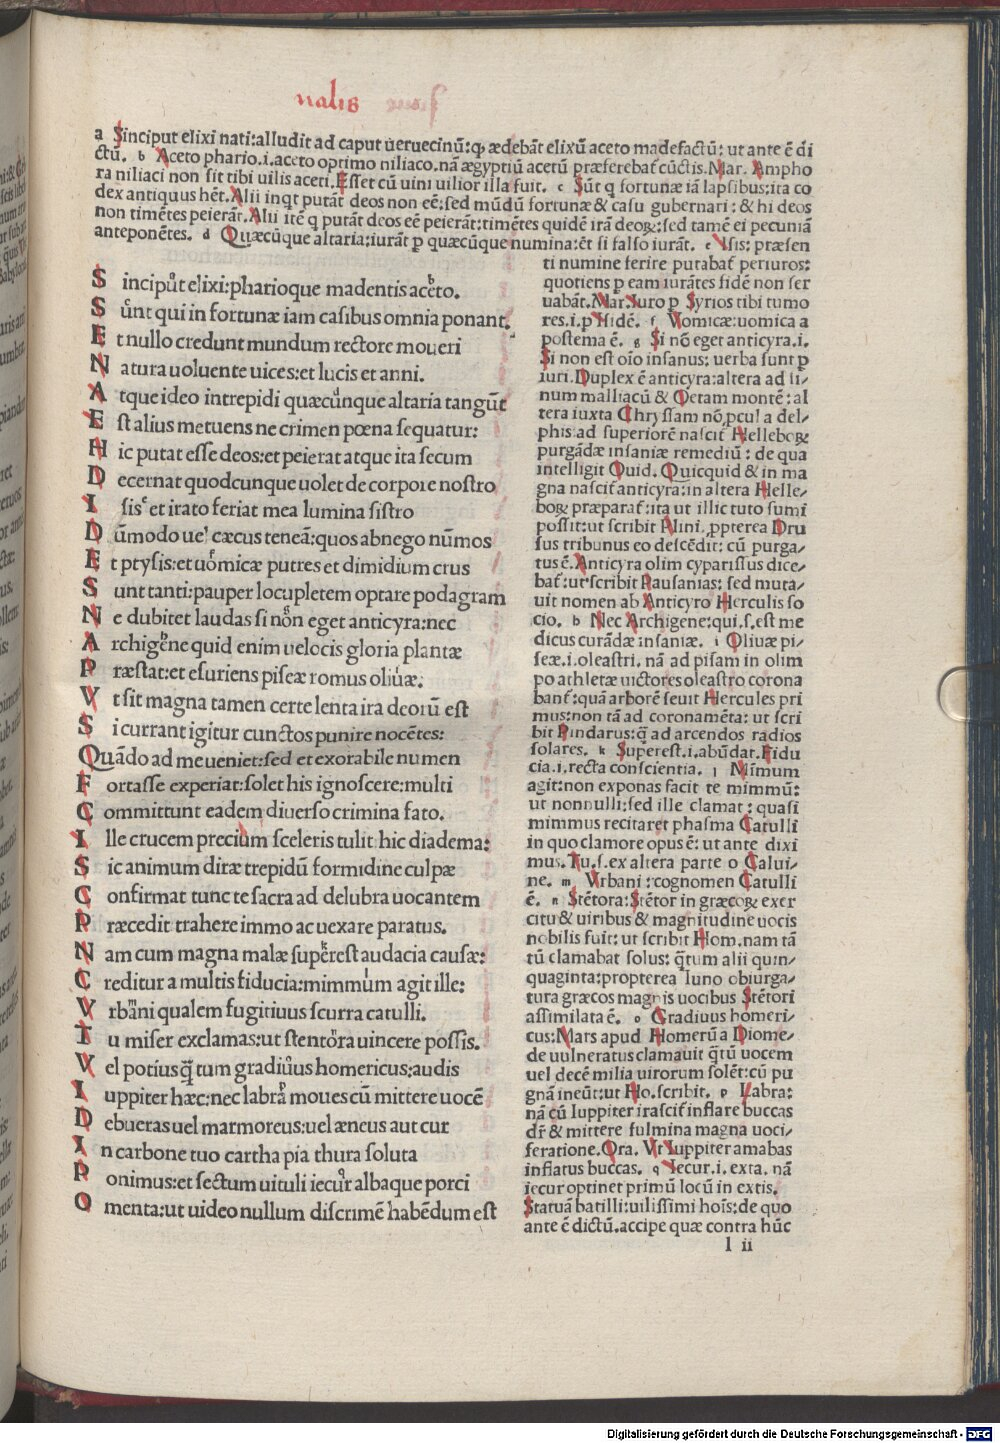 nalis
a Sinciput elixi nati:alludit ad caput ueruecinū:qꝫ ædebāt elixū aceto madefactū: ut ante ē di
ctū. b Aceto phario.i.aceto optimo niliaco.nā ægyptiū acetū præferebat̄ cūctis.Mar. Ampho
ra niliaci non sit tibi uilis aceti.Esset cū uini uilior illa fuit. c Sūt q fortunæ iā lapsibus:ita co
dex antiquus hēt.Alii inqt putāt deos non eē:sed mūdū fortunæ & casu gubernari: & hi deos
non timētes peierāt.Alii itē q putāt deos eē peierāt:timētes quidē irā deoꝝ:sed tamē ei pecuniā
anteponētes. d Quæcūque altaria:iurāt ꝑ quæcūque numina:ēt si falso iurāt. e Isis: præsen
Sinciput elixi:pharioque madentis aceto.
Sūnt qui in fortunæ iam casibus omnia ponant.
Et nullo credunt mundum rectore moueri
Natura uoluente uices:et lucis et anni.
Atque ideo intrepidi quæcunque altaria tangūt
Est alius metuens ne crimen pœna sequatur:
Hic putat esse deos:et peierat atque ita secum
Decernat quodcunque uolet de corpore nostro
Isis et irato feriat mea lumina sistro
Dūmodo uel cæcus teneā:quos abnego nūmos
Et ptysis:et uomicæ putres et dimidium crus
Sunt tanti:pauper locupletem optare podagram
Ne dubitet laudas si non eget anticyra:nec
Archigene quid enim uelocis gloria plantæ
Præstat:et esuriens piseæ romus oliuæ.
Vt sit magna tamen certe lenta ira deorū est
Si currant igitur cunctos punire nocētes:
Quādo ad me ueniet:sed et exorabile numen
Fortasse experiar:solet his ignoscere:multi
Committunt eadem diuerso crimina fato.
Ille crucem precium sceleris tulit hic diadema:
Sic animum diræ trepidū formidine culpæ
Confirmat tunc te sacra ad delubra uocantem
Præcedit trahere immo ac uexare paratus.
Nam cum magna malæ superest audacia causæ:
Creditur a multis fiducia:mimmum agit ille:
Vrbani qualem fugitiuus scurra catulli.
Tu miser exclamas:ut stentora uincere possis.
Vel potius qꝫtum gradiuus homericus:audis
Iuppiter hæc:nec labra moues cū mittere uocē
Debueras uel marmoreus:uel æneus aut cur
In carbone tuo cartha pia thura soluta
Ponimus:et sectum uituli iecur albaque porci
Omenta:ut uideo nullum discrimē habēdum est
ti numine ferire putabat̄ periuros:
quotiens ꝑ eam iurātes fidē non ser
uabāt.Mar.Iuro ꝑ Syrios tibi tumo
res.i.ꝑ Hidē. f Vomicæ:uomica a
postema ē. g Si nō eget anticyra.i.
Si non est oio insanus: uerba sunt ꝑ
iuri.Duplex ē anticyra:altera ad si/
num malliacū & Oetam montē: al
tera iuxta Chryssam nō ꝓcul a del/
phis:ad superiorē nascit̄ Helleboꝝ
purgādæ insaniæ remediū : de qua
intelligit Ouid. Quicquid & in ma
gna nascit̄ anticyra:in altera Helle/
boꝝ præparat̄:ita ut illic tuto sumi
possit:ut scribit Plini. ꝓpterea Dru
sus tribunus eo descēdit: cū purga/
tus ē.Anticyra olim cyparissus dice/
bat̄:ut scribit Pausanias: sed muta/
uit nomen ab Anticyro Herculis so
cio. h Nec Archigene:qui.s.est me
dicus curādæ insaniæ. i Oliuæ pi/
seæ.i.oleastri. nā ad pisam in olim
po athletæ uictores oleastro corona
bant̄:quā arborē seuit Hercules pri
mus:non tā ad coronamēta: ut scri
bit Pindarus:q̄ ad arcendos radios
solares. k Superest.i.abūdat.Fidu
cia.i.recta conscientia. l Mimum
agit:non exponas facit te mimmū:
ut nonnulli:sed ille clamat : quasi
mimmus recitaret phasma Catulli
in quo clamore opus ē: ut ante dixi
mus.Tu.s.ex altera parte o Calui/
ne. m Vrbani :cognomen Catulli
ē. n Stētora:Stētor in græcoꝝ exer
citu & uiribus & magnitudine uocis
nobilis fuit: ut scribit Hom.nam tā
tū clamabat solus: q̄tum alii quin/
quaginta:propterea Iuno obiurga/
tura græcos magnis uocibus Stētori
assimilata ē. o Gradiuus homeri/
cus:Mars apud Homerū a Diome/
de uulneratus clamauit q̄tū uocem
uel decē milia uirorum solēt:cū pu
gnā ineūt:ut Ho.scribit. p Labra:
nā cū Iuppiter irascit̄ inflare buccas
dr̄ & mittere fulmina magna uoci/
feratione.Ora. Vt Iuppiter amabas
inflatus buccas. q Iecur.i. exta. nā
iecur optinet primū locū in extis.
Statuā batilli:uilissimi hoīs: de quo
ante ē dictū.accipe quæ contra hūc
l ii
Digitalisierung gefördert durch die Deutsche Forschungsgemeinschaft - DFG